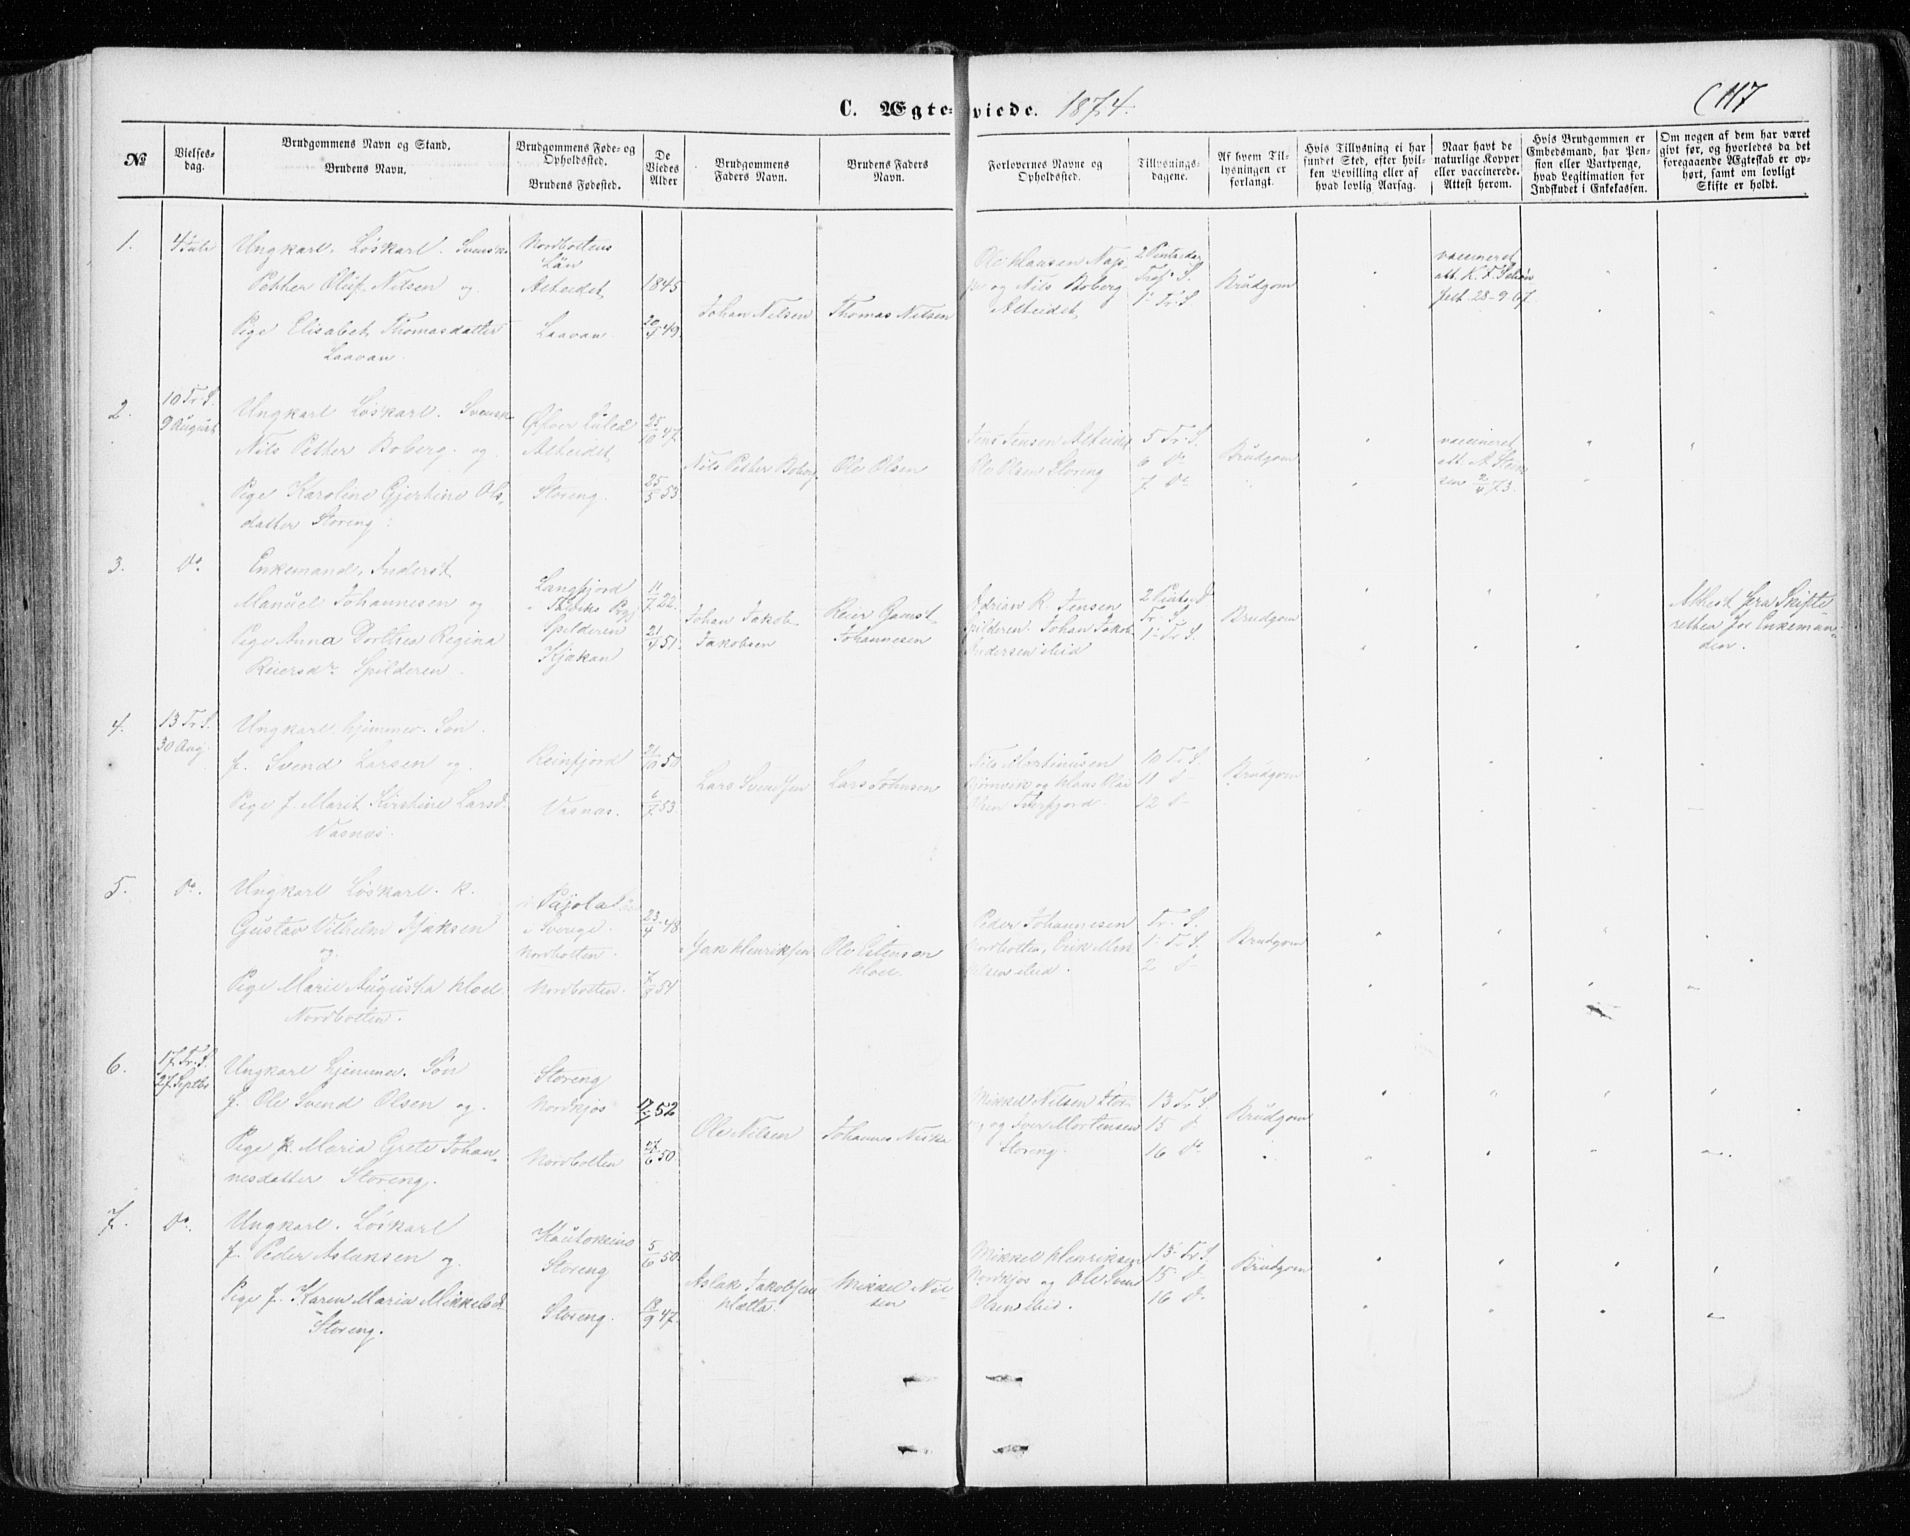 C. Ægteviede. 1874.
C 117
№
Vielsesdag.
Brudgommens Navn og Stand.
Brudens Navn.
Brudgommens Føde- og Opholdssted.
Brudens Fødested.
De Viedes Alder
Brudgommens Faders Navn.
Brudens Faders Navn.
Forlovernes Navne og Opholdssted.
Tillysningsdagene.
Af hvem Tillysningen er forlangt.
Hvis Tillysning ei har fundet Sted, efter hvilken Bevilling eller af hvad lovlig Aarsag.
Naar havt de naturlige Kopper eller vaccinerede. Attest herom.
Hvis Brudgommen er Embedsmand, har Pension eller Vartpenge, hvad Legitimation for Indskudet i Enkekassen.
Om nogen af dem har været givt før, og hvorledes da det foregaaende Ægteskab er ophørt, samt om lovligt Skifte er holdt.
1.
4 Juli
Ungkarl. Løskarl. Svensk
Petter Oluf Nilsen og
Pige Elisabet Thomasdatter
Laavan.
Nordbottens
Län
Alteidet
Laavan.
1845
20/ 49.
Johan Nilsen
Thomas Nilsen
Ole Klausen
og Nils Boberg
Alteidet
2 Pintsedag
Tref. S.
1' Tr. S.
Brudgom
vaccineret
att. K. F.
28-9-67.
2.
10 Tr. S.
9 August
Ungkarl Løskarl. Svensk
Nils Petter Boberg. og
Pige Karoline Gjertine Ols-
datter Storeng.
Øfver Luleå
Alteidet
Storeng.
25/10 47.
25/5 53
Nils Petter Boberg
Ole Olsen
Jens Jensen Alteidet
Ole Olsen Storeng
5 Tr. S.
6 do
7 do
Brudgom
vaccineret
att. A. Steen
sen 2/4 73.
3.
do.
Enkemand, Inderst
Manuel Johannesen og
Pige Anna Dorthea Regina
Reiersdr. Spilderen.
Langfjord
Spilderen
Kjækan
11/7 22.
21/4 51.
Johan Jakob
Jakobsen
Reier Gamst
Johannesen
Adrian R. Jensen
Spilderen. Johan Jakob
Andersen ibid
2 Pintsed
Tr. S.
1' Tr. S.
Brudgom
Attest fra Skifte-
retten for Enkeman-
den.
4.
13 Tr. S.
30 Aug.
Ungkarl hjemmev. Søn.
f. Svend Larsen og
Pige f. Marit Kirstine Larsd.
Vasnæs.
Reinfjord
Vasnæs.
21/10 50
6/7 53.
Lars Svendsen
Lars Johnsen
Nils Martinusen
og Klaus
Tverfjord.
10 Tr. S.
11 d-
12 d-
Brudgom
5.
do.
Ungkarl Løskarl. k.
Gustav Vilhelm Isaksen
og
Pige Marie Augusta
Nordbotten.
Pajola
i Sverige.
Nordbotten.
Nordbotten.
23/4 48.
7/8 54
Isak Henriksen
Ole
Peder Johannesen
Nordbotten, Erik
ibid.
Tr. S.
1' Tr. S.
2 d-
Brudgom
6.
17. Tr. S.
27. Septbr
Ungkarl hjemmev. Søn
f. Ole Svend Olsen og.
Pige k. Maria Grete Johan-
nesdatter Storeng.
Storeng
Nordkjos
Nordbotten
52
27/6 50
Ole Nilsen
Johannes Niska
Mikkel Nilsen Stor-
og Iver Mortensen
Storeng.
13 Tr. S.
15 d
16 do
Brudgom
7.
do.
Ungkarl. Løskarl
f. Peder Aslaksen og.
Pige f. Karen Maria Mikkelsd.
Storeng.
Kautokeino
Storeng
Storeng.
5/6 50
18/9 47.
Aslak Jakobsen
Hætta.
Mikkel Nil-
sen
Mikkel Henriksen
Nordkjos og Ole Svend
Olsen ibid.
13 Tr. S.
15 d.
16 d.
Brudgom